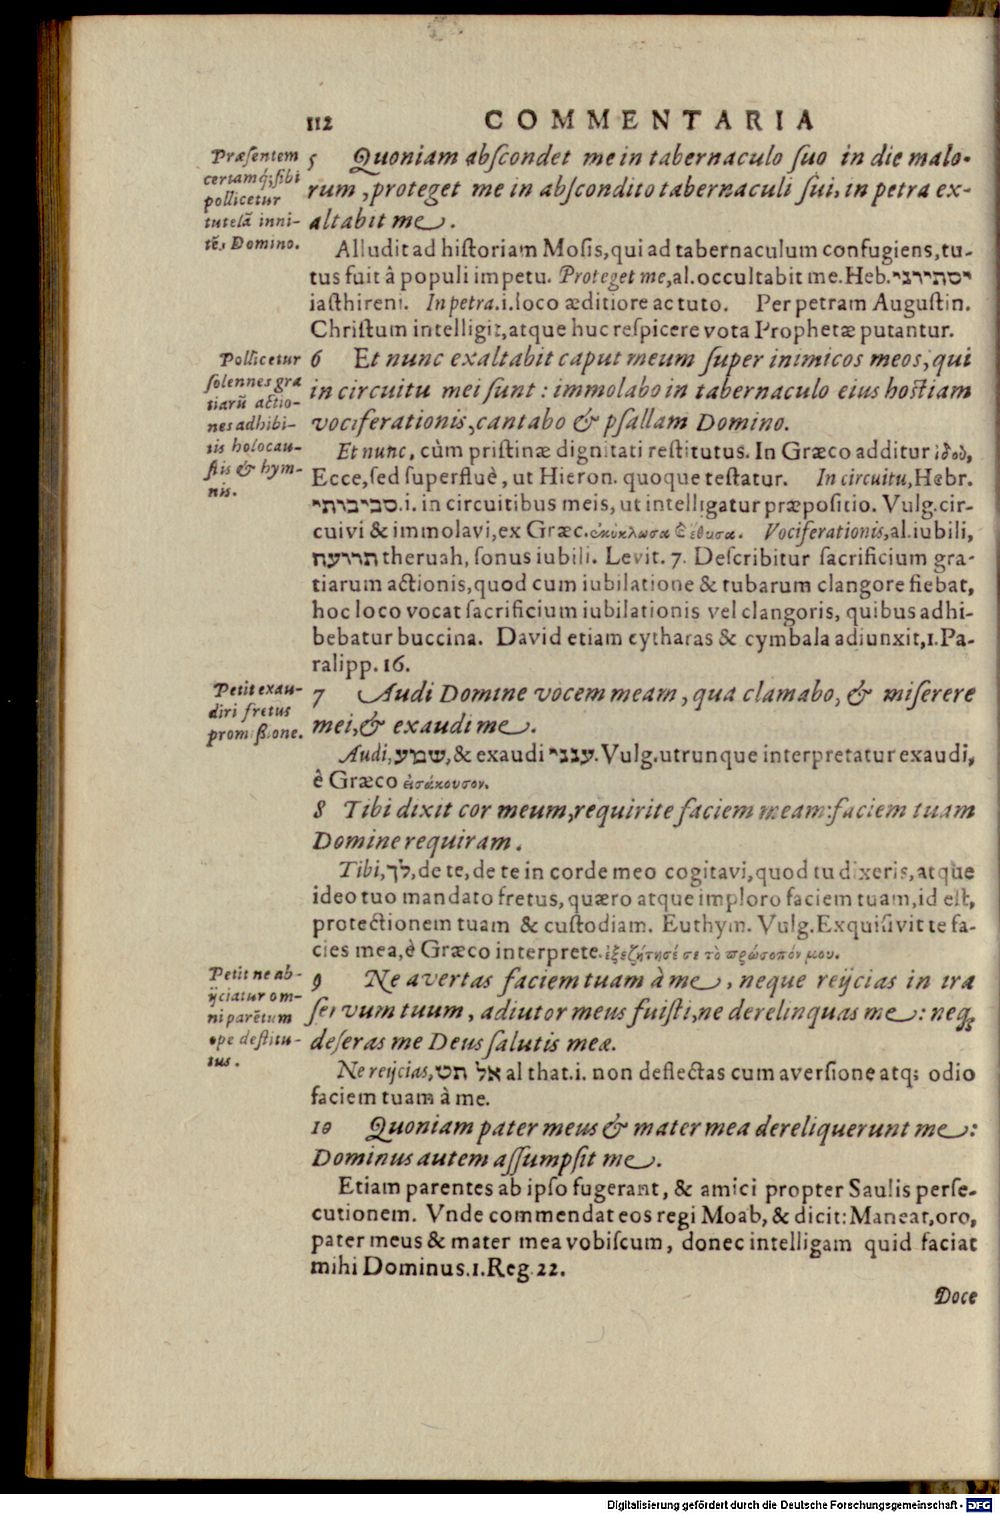 112 COMMENTARIA
Præſentem
certamq́;ſibi
pollicetur
tutelã inni-
tẽs Domino.
5 Quoniam abſcondet me in tabernaculo ſuo in die malo-
rum, proteget me in abſcondito tabernaculi ſui, in petra ex-
altabit me.
Alludit ad hiſtoriam Moſis, qui ad tabernaculum confugiens, tu-
tus fuit â populi impetu. Proteget me, al. occultabit me. Heb. יסתירני
iaſthireni. In petra. i. loco æditiore ac tuto. Per petram Auguſtin.
Chriſtum intelligit, atque huc reſpicere vota Prophetæ putantur.
Pollicetur
ſolennes gra
tiarũ actio-
nes adhibi-
tis holocau-
ſtis & hym-
nis.
6 Et nunc exaltabit caput meum ſuper inimicos meos, qui
in circuitu mei ſunt: immolabo in tabernaculo eius hoſtiam
vociferationis, cantabo & pſallam Domino.
Et nunc, cùm priſtinæ dignitati reſtitutus. In Græco additur ἰδοὺ,
Ecce, ſed ſuperfluè, ut Hieron. quoque teſtatur. In circuitu, Hebr.
סביבותי.i. in circuitibus meis, ut intelligatur præpoſitio. Vulg. cir-
cuivi & immolavi, ex Græc. ἐκύκλωσα ϗ ἔθυσα. Vociferationis, al. iubili,
תרועה theruah, ſonus iubili. Levit. 7. Deſcribitur ſacrificium gra-
tiarum actionis, quod cum iubilatione & tubarum clangore fiebat,
hoc loco vocat ſacrificium iubilationis vel clangoris, quibus adhi-
bebatur buccina. David etiam cytharas & cymbala adiunxit, 1. Pa-
ralipp. 16.
Petit exau-
diri fretus
promiſsione.
7 Audi Domine vocem meam, qua clamabo, & miſerere
mei, & exaudi me.
Audi, שמע, & exaudi ענני. Vulg. utrunque interpretatur exaudi,
è Græco εἰσάκουσον.
8 Tibi dixit cor meum, requirite faciem meam: faciem tuam
Domine requiram.
Tibi, לך, de te, de te in corde meo cogitavi, quod tu dixeris, atque
ideo tuo mandato fretus, quæro atque imploro faciem tuam, id eſt,
protectionem tuam & cuſtodiam. Euthym. Vulg. Exquiſivit te fa-
cies mea, è Græco interprete. ἐξεζήτησέ σε τὸ πρόσωπόν μου.
Petit ne ab-
ijciatur om-
ni parẽtum
ope deſtitu-
tus.
9 Ne avertas faciem tuam à me, neque reijcias in ira
ſervum tuum, adiutor meus fuiſti, ne derelinquas me: neq;
deſeras me Deus ſalutis meæ.
Ne reijcias, אל תט al that. i. non deflectas cum averſione atq; odio
faciem tuam à me.
10 Quoniam pater meus & mater mea dereliquerunt me:
Dominus autem aſſumpſit me.
Etiam parentes ab ipſo fugerant, & amici propter Saulis perſe-
cutionem. Vnde commendat eos regi Moab, & dicit: Maneat, oro,
pater meus & mater mea vobiſcum, donec intelligam quid faciat
mihi Dominus. 1. Reg. 22.
Doce
Digitalisierung gefördert durch die Deutsche Forschungsgemeinschaft - DFG